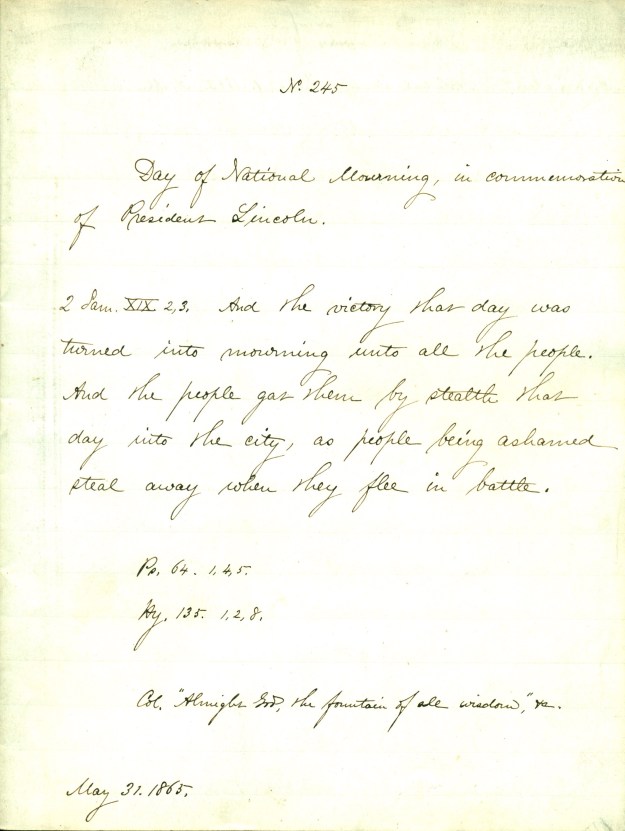 No. 245
Day of National Mourning, in commemoration
of President Lincoln.
2 Sam. XIX 2,3. And the victory that day was
turned into mourning unto all the people.
And the people gat them by stealth that
day into the city, as people being ashamed
steal away when they flee in battle.
Ps. 64. 1,4,5.
Hy. 135. 1,2,8.
Col. "Almight God, the fountain of all wisdom", &c.
May 31. 1865.